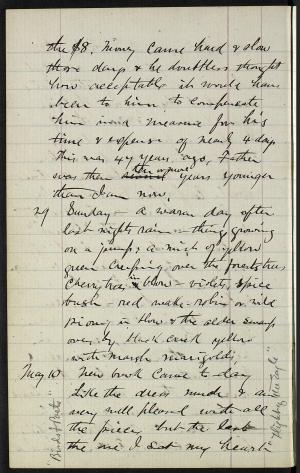 the $8. Money came hard & slow
those days & he doubtless thought
how acceptable its would have
been to him to compensate
him in measure for his
time & expense of nearly 4 days
This was 47 years ago, Father
was then ten or more years younger
than I am now.
29 Sunday - A warm day after
last nights rain - things growing
on a jump; a mist of yellow
green creeping over the forest trees
Cherry trees in blow - violets, spice
bush - red
in blow & the alder swamp
over by yellow
with marsh marigolds,
May 10. New book came to-day
Like the dress much & am
very well pleased with all
the pieces, but the last
the one I set my heart
"Birds & Poets"
"Flight of the Eagle"